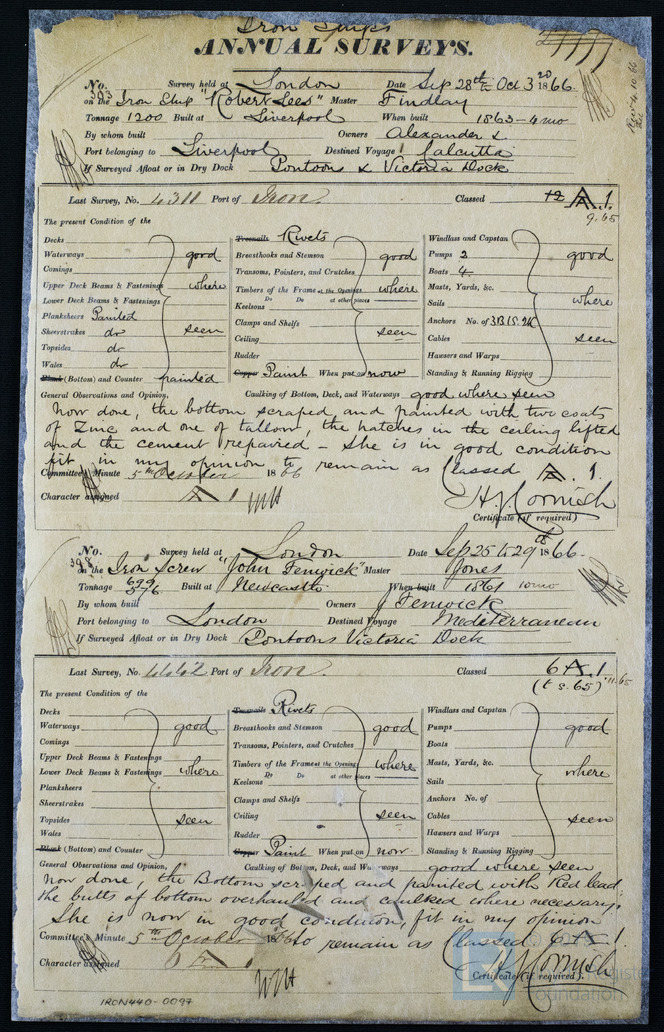 Iron Ships
ANNUAL SURVEYS.
Rec 4.10.66
No. 393 Survey held at London Date Sep 28th & Oct 3 1866.
on the Iron Ship "Robert Lees" Master Findlay
Tonnage 1200 Built at Liverpool When built 1863-4mo
By whom built Owners Alexander &
Port belonging to Liverpool Destined Voyage Calcutta
If Surveyed Afloat or in Dry Dock Pontoon & Victoria Dock
Last Survey, No. 4311 Port of Iron. Classed 12 A.1.
9.65
The present Condition of the
Decks
Waterways good
Comings
Upper Deck Beams & Fastenings where
Lower Deck Beams & Fastenings
Planksheers Painted
Sheerstrakes do seen
Topsides do
Wales do
Plank (Bottom) and Counter painted
Treenails Rivets
Breasthooks and Stemson good
Transoms, Pointers, and Crutches
Timbers of the Frame at the Openings where
Do Do at other places
Keelsons
Clamps and Shelfs
Ceiling seen
Rudder
Copper Paint When put on now
Windlass and Capstan
Pumps 2 good
Boats 4.
Masts, Yards, &c.
Sails where
Anchors No. of 3B 1S. 2K
Cables seen
Hawsers and Warps
Standing & Running Rigging
General Observations and Opinion, Caulking of Bottom, Deck, and Waterways good where seen
Now done, the bottom scraped, and painted with two coats
of Zinc and one of tallow, the hatches in the ceiling lifted
and the cement repaired – She is in good condition
fit in my opinion to remain as Classed A. 1.
Committee's Minute 5th October 1866
Character assigned A 1
H J Cornish
Certificate (if required)
No. 398 Survey held at London Date Sep 25 to 29th 1866.
on the Iron Screw "John Fenwick" Master Jones
Tonnage 699 576 Built at Newcastle When built 1861 10mo
By whom built Owners J Fenwick
Port belonging to London Destined Voyage Mediterranean
If Surveyed Afloat or in Dry Dock Pontoons Victoria Dock
Last Survey, No. 4442 Port of Iron. Classed 6 A.1
(t s. 65) 11.65
The present Condition of the
Decks
Waterways good
Comings
Upper Deck Beams & Fastenings
Lower Deck Beams & Fastenings where
Planksheers
Sheerstrakes
Topsides seen
Wales
Plank (Bottom) and Counter
Treenails Rivets
Breasthooks and Stemson good
Transoms, Pointers, and Crutches
Timbers of the Frame at the Openings where
Do Do at other places
Keelsons
Clamps and Shelfs
Ceiling seen
Rudder
Copper Paint When put on now
Windlass and Capstan
Pumps good
Boats
Masts, Yards, &c.
Sails where
Anchors No. of
Cables seen
Hawsers and Warps
Standing & Running Rigging
General Observations and Opinion, Caulking of Bottom, Deck, and Waterways good where seen
Now done, the Bottom scraped and painted with Red lead,
the butts of bottom overhauled and caulked where necessary.
She is now in good condition, fit in my opinion
Committee's Minute 5th October 1866 to remain as Classed 6 A 1.
Character assigned A 1
H J Cornish
Certificate (if required).
IRON440-0097